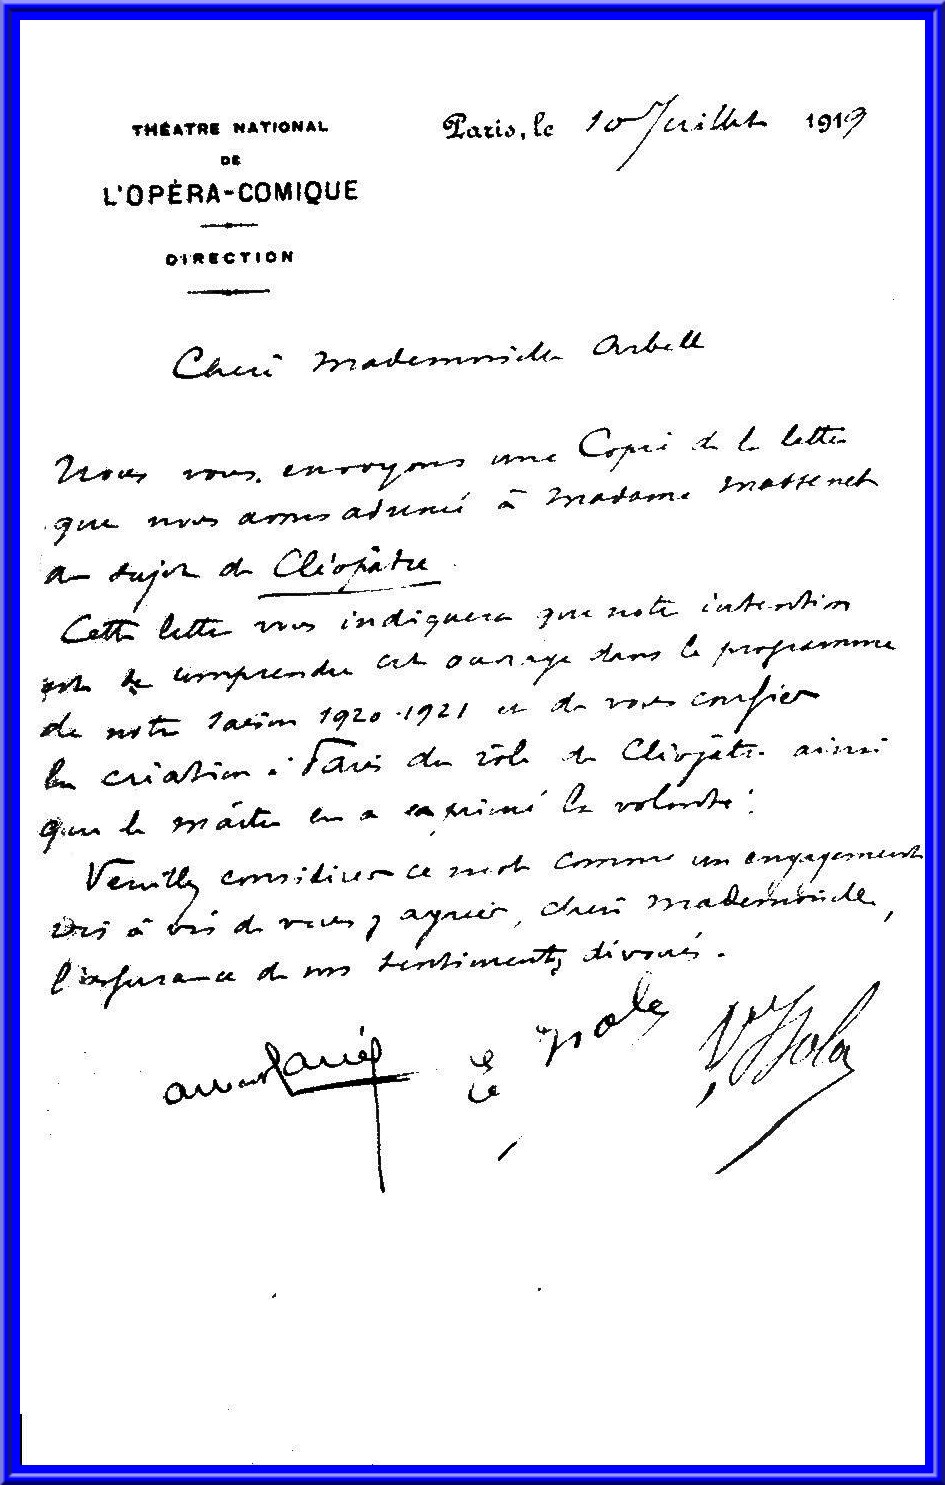 THÉATRE NATIONAL
DE
L'OPÉRA-COMIQUE
DIRECTION
Paris, le 10 Juillet 1919
Chère Mademoiselle Arbell
Nous vous envoyons une Copie de la lettre
que nous avons adressé à Madame Massenet
au sujet de Cléopâtre
Cette lettre vous indiquera que notre intention
est de comprendre cet ouvrage dans le programme
de notre saison 1920-1921 et de vous confier
la création à Paris du rôle de Cléopâtre ainsi
que le maître en a exprimé la volonté.
Veuillez considérer ce mot comme un engagement
vis à vis de vous, agréer, chère Mademoiselle,
l'assurance de nos sentiments dévoués.
Isola
V. Isola